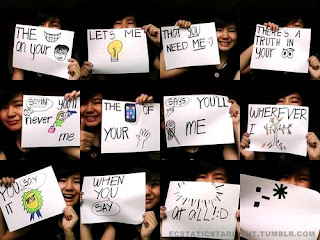 THE
on your
LET'S ME
THAT YOU
NEED ME :)
THERE'S A
TRUTH IN
your
SAYIN
never
me
THE OF
YOUR
SAYS YOU'LL
ME
WHEREVER
I
YOU SAY
IT
WHEN
YOU
SAY
at all! :D
:-*
ECSTATICSTARLIGHT.TUMBLR.COM